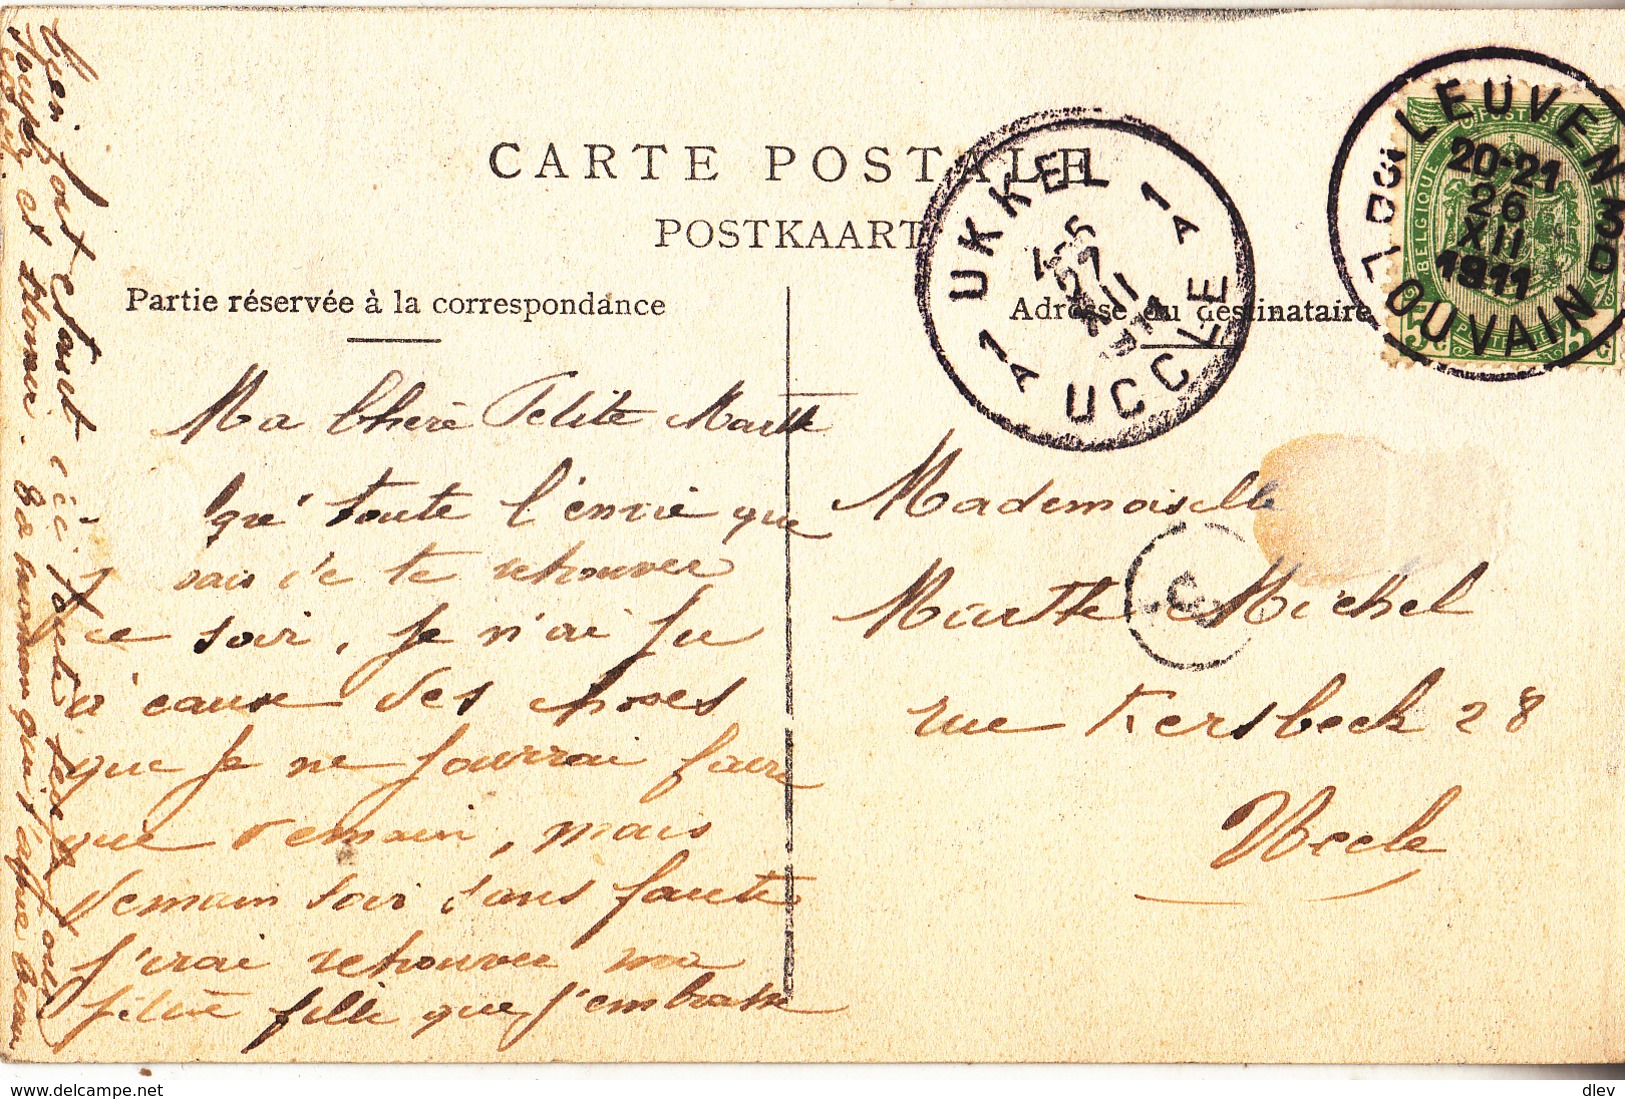 CARTE POSTALE
POSTKAART
Partie réservée à la correspondance
Adresse du destinataire
UKKEL 1A
27
XII
1A UCCLE
LEUVEN 3D
20-21
26
XII
1911
LOUVAIN 3D
POSTES
BELGIQUE
5c 5c
Ma Chère Petite Marthe
qué toute l'envie que
j'avais de te retrouver
ce soir, je n'ai pu
à cause des choses
que je ne pourrai faire
que demain, mais
demain soir sans faute
j'irai retrouver ma
petite fille que j'embrasse
Mademoiselle
Marthe Michel
rue Kersbeek 28
Uccle
Joseph et
www.delcampe.net
dlev